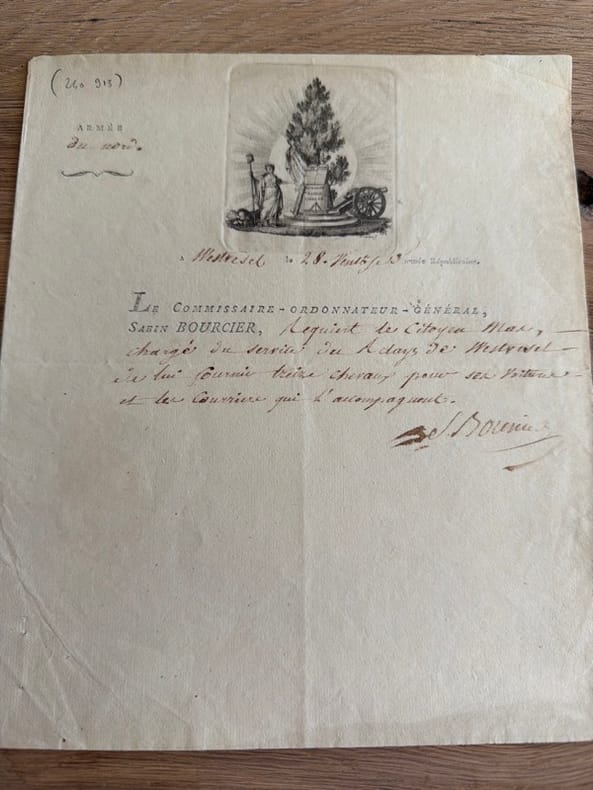 (260 913)
ARMÉE
du nord.
à Westvesel le 28. Vent.se 3 année Républicaine.
LE COMMISSAIRE-ORDONNATEUR-GÉNÉRAL,
SABIN BOURCIER, Requiert le Citoyen
chargé du service du Relays de Westvesel
de lui fournir treize chevaux pour ses Voitures
et les Courriers qui l'accompagnent.
S. Bourcier